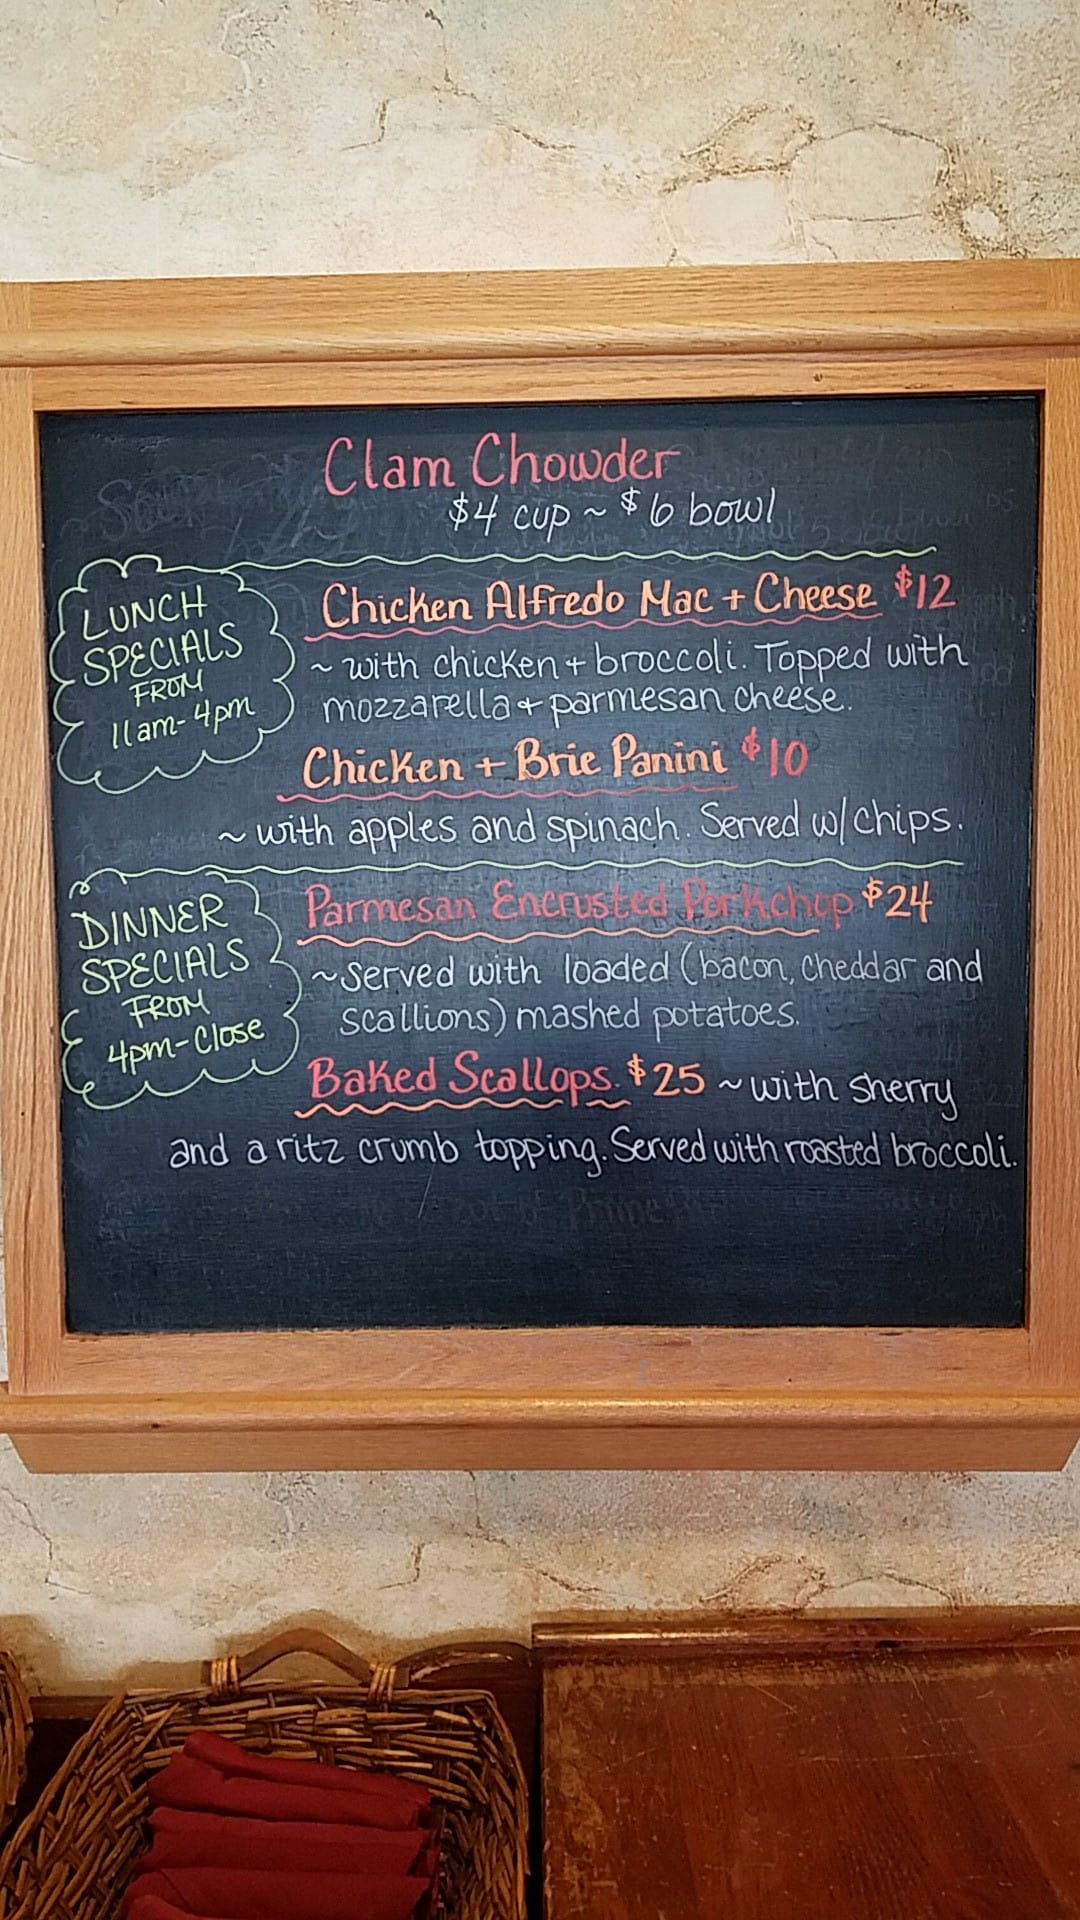 Clam Chowder
$4 cup ~ $6 bowl
LUNCH
SPECIALS
FROM
11am-4pm
Chicken Alfredo Mac + Cheese $12
~ with chicken + broccoli. Topped with
mozzarella + parmesan cheese.
Chicken + Brie Panini $10
~ with apples and spinach. Served w/ chips.
DINNER
SPECIALS
FROM
4pm-Close
Parmesan Encrusted Porkchop $24
~Served with loaded (bacon, cheddar and
scallions) mashed potatoes.
Baked Scallops. $25 ~ with sherry
and a ritz crumb topping. Served with roasted broccoli.